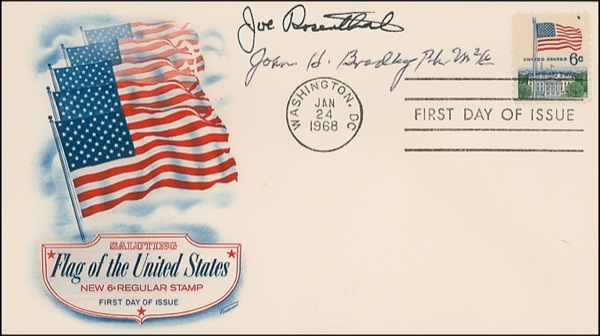 Joe Rosenthal
John H. Bradley Ph M 2/c
UNITED STATES 6c
WASHINGTON, DC
JAN
24
1968
FIRST DAY OF ISSUE
SALUTING
Flag of the United States
NEW 6¢ REGULAR STAMP
FIRST DAY OF ISSUE